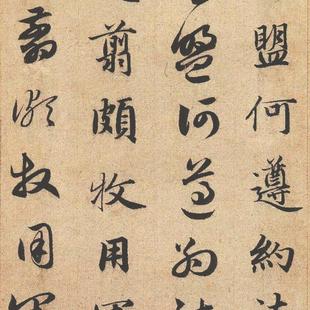 盟何遵約
盟何遵約
翦頗牧用
翦頗牧用